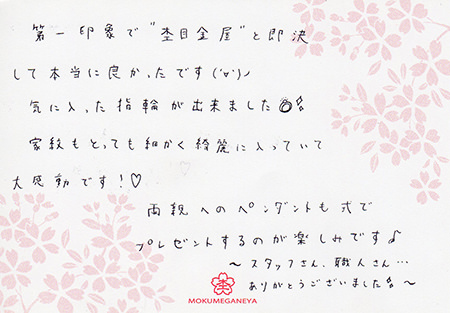 第一印象で"杢目金屋"と即決
して本当に良かったです(''▽'')ノ
気に入った指輪が出来ました💍✨
家紋もとっても細かく綺麗に入っていて
大感動です！♡
両親へのペンダントも式で
プレゼントするのが楽しみです♪
〜スタッフさん、職人さん…
ありがとうございました✨〜
杢
MOKUMEGANEYA